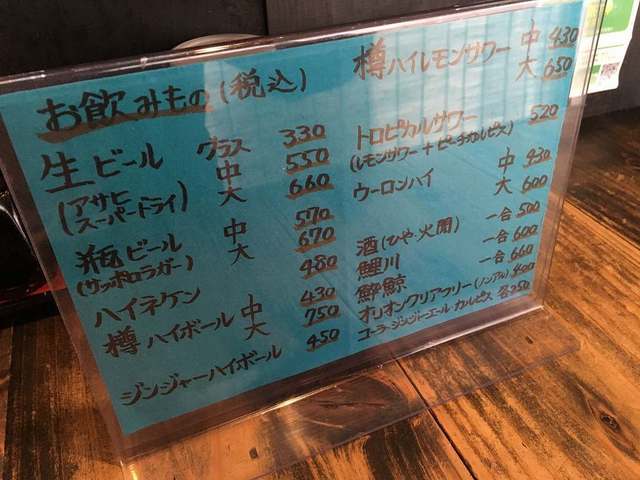 お飲みもの(税込)
生ビール グラス 330
(アサヒ 中 550
スーパードライ) 大 660
瓶ビール 中 570
(サッポロラガー) 大 670
ハイネケン 480
樽ハイボール 中 430
大 750
ジンジャーハイボール 450
樽ハイレモンサワー 中 430
大 650
トロピカルサワー 520
(レモンサワー+ピーチカルピス)
ウーロンハイ 中 430
大 600
酒(ひや・火閧) 一合 500
鯉川 一合 600
酔鯨 一合 660
オリオンクリアフリー(ノンアル) 400
コーラ・ジンジャーエール・カルピス 各250